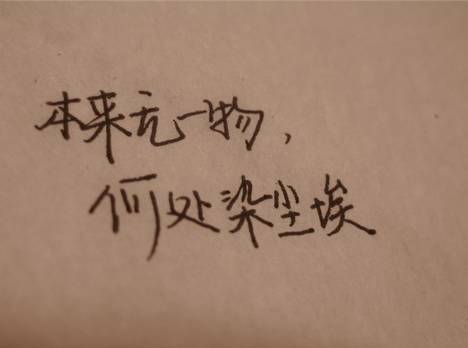 本来无一物，
何处染尘埃